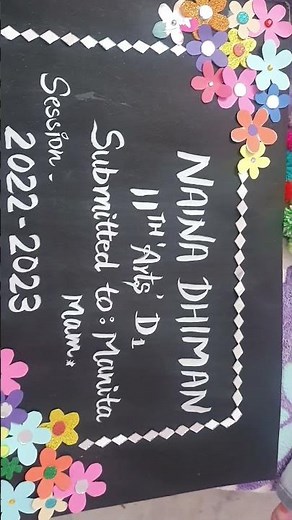 NAINA DHIMAN
11TH 'Arts' D1
Submitted to: Manita
Mam.
Session-
2022-2023